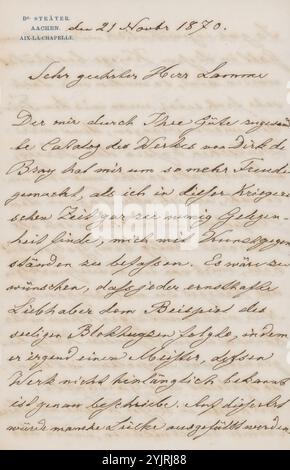 Dr STRÄTER.
AACHEN.
AIX-LA-CHAPELLE.
den 21 Novbr 1870.
Sehr geehrter Herr Lamme
Der mir durch Ihre Güte zugesand
te Catalog des Werkes von Dirk de
Bray hat mir um so mehr Freude
gemacht, als ich in dieser kriegeri
schen Zeit gar zu wenig Gelegen
heit finde, mich mit Kunstgegen
ständen zu befassen. Es wäre zu
wünschen, dass jeder ernsthafte
Liebhaber dem Beispiel des
seeligen Blokhuyzen folgte, indem
er irgend einen Meister, dessen
Werk nicht hinlänglich bekannt
ist genau beschriebe. Auf diese Art
würde manche Lücke ausgefüllt werden
alamy
Image ID: 2YJRJ88
www.alamy.com